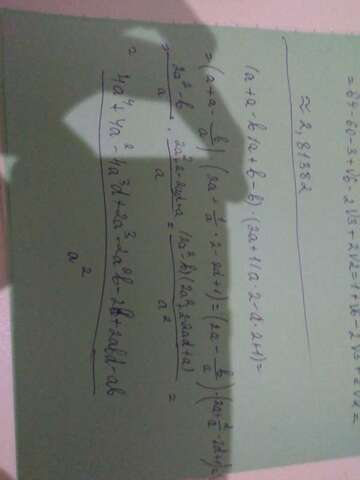 = 64 - 6√3 + √6 - 2√3 + 2√2 = 1 + √6 - 2√3 + √2 =
≈ 2,81382
(a+a-b/a+b-b)·(2a+1/a·2-d·2+1)=
=(a+a-b/a)·(2a+1/a·2-2d+1)=(2a-b/a)·(2a+2/a-2d+1)=
=2a²-b/a · 2a²+2-2ad+a/a = (2a²-b)(2a²+2-2ad+a)/a² =
= 4a⁴+4a²-4a³d+2a³-2a²b-2b+2abd-ab/a²